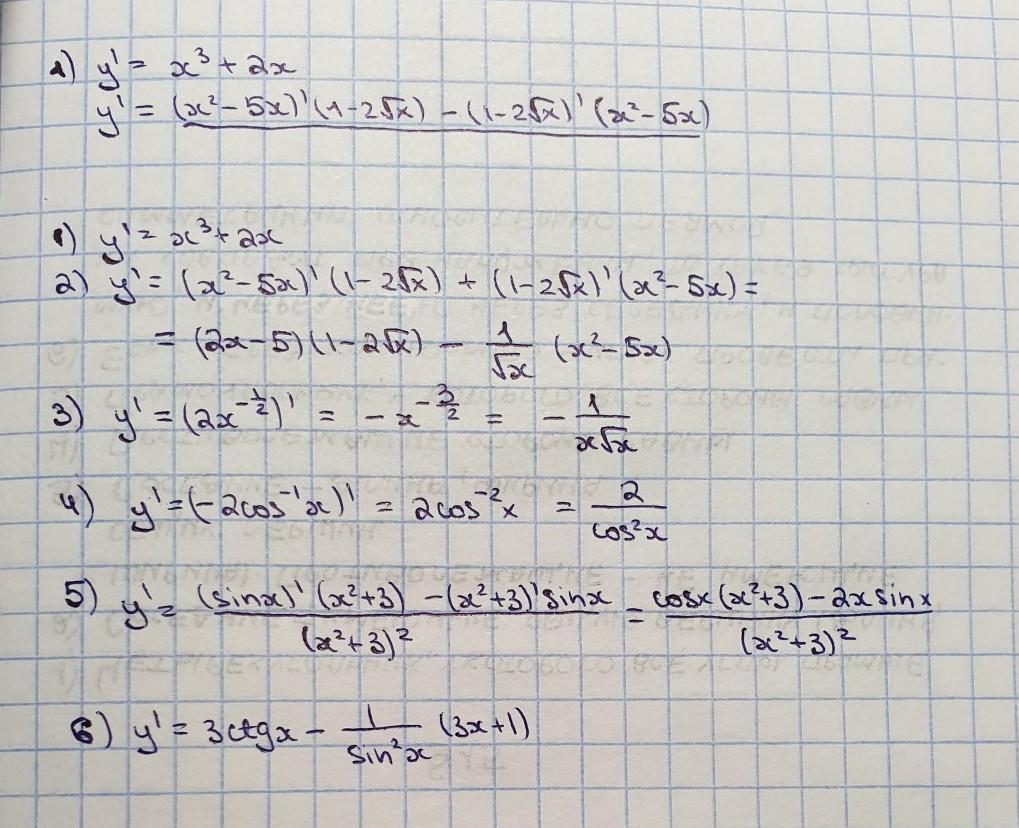 1) y' = x³ + 2x
y' = (x² - 5x)' (1 - 2√x) - (1 - 2√x)' (x² - 5x)
1) y' = x³ + 2x
2) y' = (x² - 5x)' (1 - 2√x) + (1 - 2√x)' (x² - 5x) =
= (2x - 5) (1 - 2√x) - 1/√x (x² - 5x)
3) y' = (2x^(-1/2))' = -x^(-3/2) = - 1/(x√x)
4) y' = (-2cos⁻¹x)' = 2cos⁻²x = 2/cos²x
5) y' = ((sinx)' (x² + 3) - (x² + 3)' sinx)/(x² + 3)² = (cosx (x² + 3) - 2x sinx)/(x² + 3)²
6) y' = 3ctgx - 1/sin²x (3x + 1)